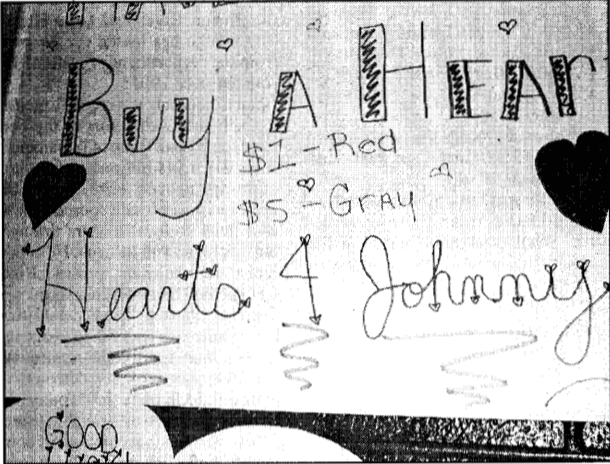 Buy A Hear
$1-Red
$5-Gray
Hearts 4 Johnny
Good